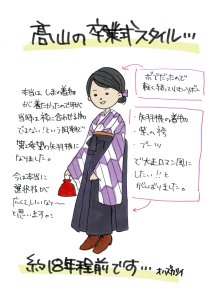 高山の卒業式スタイル…
本当は しまの着物
が着たかったので母が
当時は袴に合わせる物
ではない!という風潮で
第2希望の矢羽根に
なりました。
今は本当に
選択肢が
広くてうらやましいな〜
と思います。
ボブだったので
軽く結ってもらいました。
・矢羽根の着物
・紫の袴
・ブーツ
で大正ロマン風に
したい!!と
がんばりました。
約18年程前です…